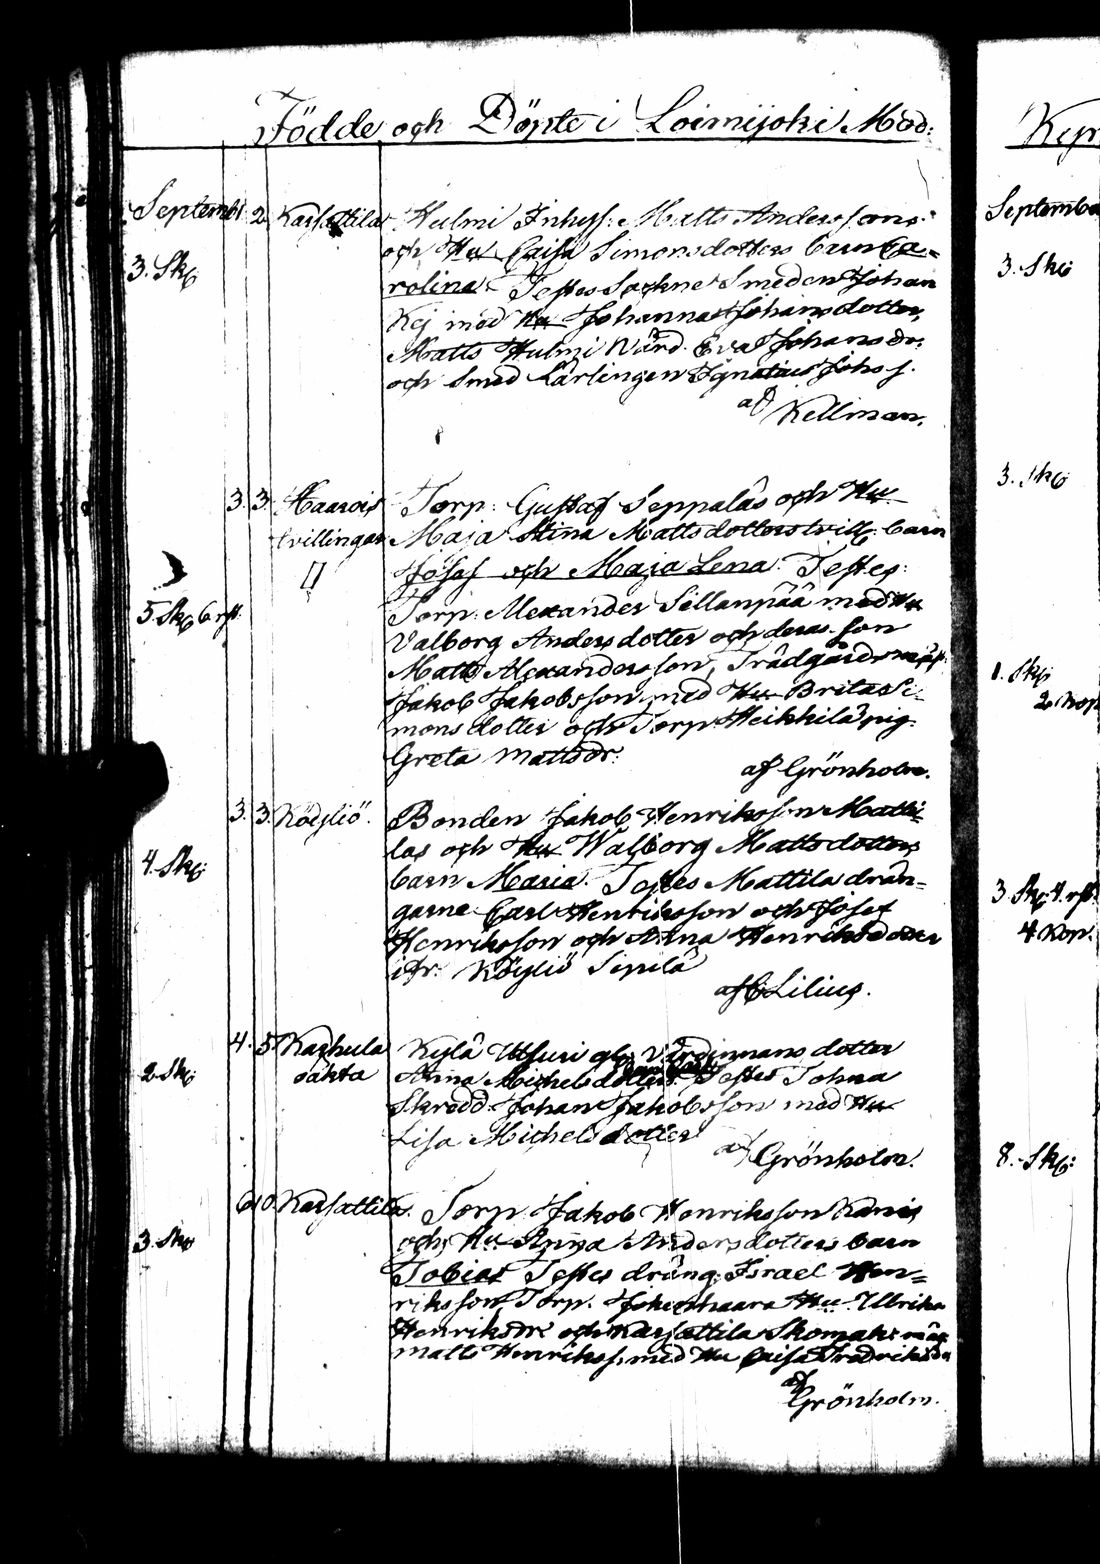 Födde och Döpte i Loimijoki Mod:
Septembr 1 2 Karsattila Hulmi Inhys: Matts Anderssons
och Hu Caisa Simonsdotters barn Ca-
3. Sk: rolina Testes Sockne Smeden Johan
Kej med Hu Johanna Johansdotter,
Matts Hulmi Värd. Eva Johans dr:
och Smed Lärlingen Ignatius Johs s.
af Kellman.
3. 3. Haarois Torp: Gustaf Seppaläs och Hu
tvillingar Maja Stina Mattsdotters tvill: barn
Josef och Maja Lena. Testes:
5 Sk 6 rst. Torp: Alexander Sillanpää med Hu
Valborg Andersdotter och deras son
Matts Alexandersson, Trädgårdsmäst:
Jakob Jakobsson med Hu Brita Si-
monsdotter och Torp Heikkilä pig.
Greta Mattsdr:
af Grönholm.
3. 3. Ködjliö. Bonden Jakob Henriksson Matti-
las och Hu Walborg Mattsdotters
4. Sk: barn Maria. Testes Mattila drän-
garne Carl Henriksson och Josef
Henriksson och Anna Henriksdotter
ifr: Köyliö Sipilä
af C Lilius.
4. 5 Karhula Kylä Uusi Värdinnans dotter
2 Sk: oäkta Anna Michelsdotters Testes Johna
Skredd. Johan Jakobsson med Hu
Lisa Michelsdotter
af Grönholm.
6 10. Karsattila. Torp. Jakob Henriksson
3 Sk: och Hu Anna Andersdotters barn
Tobias Testes dräng. Israel Hen-
riksson, Torp. Hu Ullrika
Henriksdr och Karsattila Skomak:
Matts Henrikss. med Hu Caisa Fredriksdr
af Grönholm.
Kyr
September
3. Sk:
3. Sk:
1. Sk:
2 Kop
3 Sk: 4 rst.
4 Kop.
8. Sk: